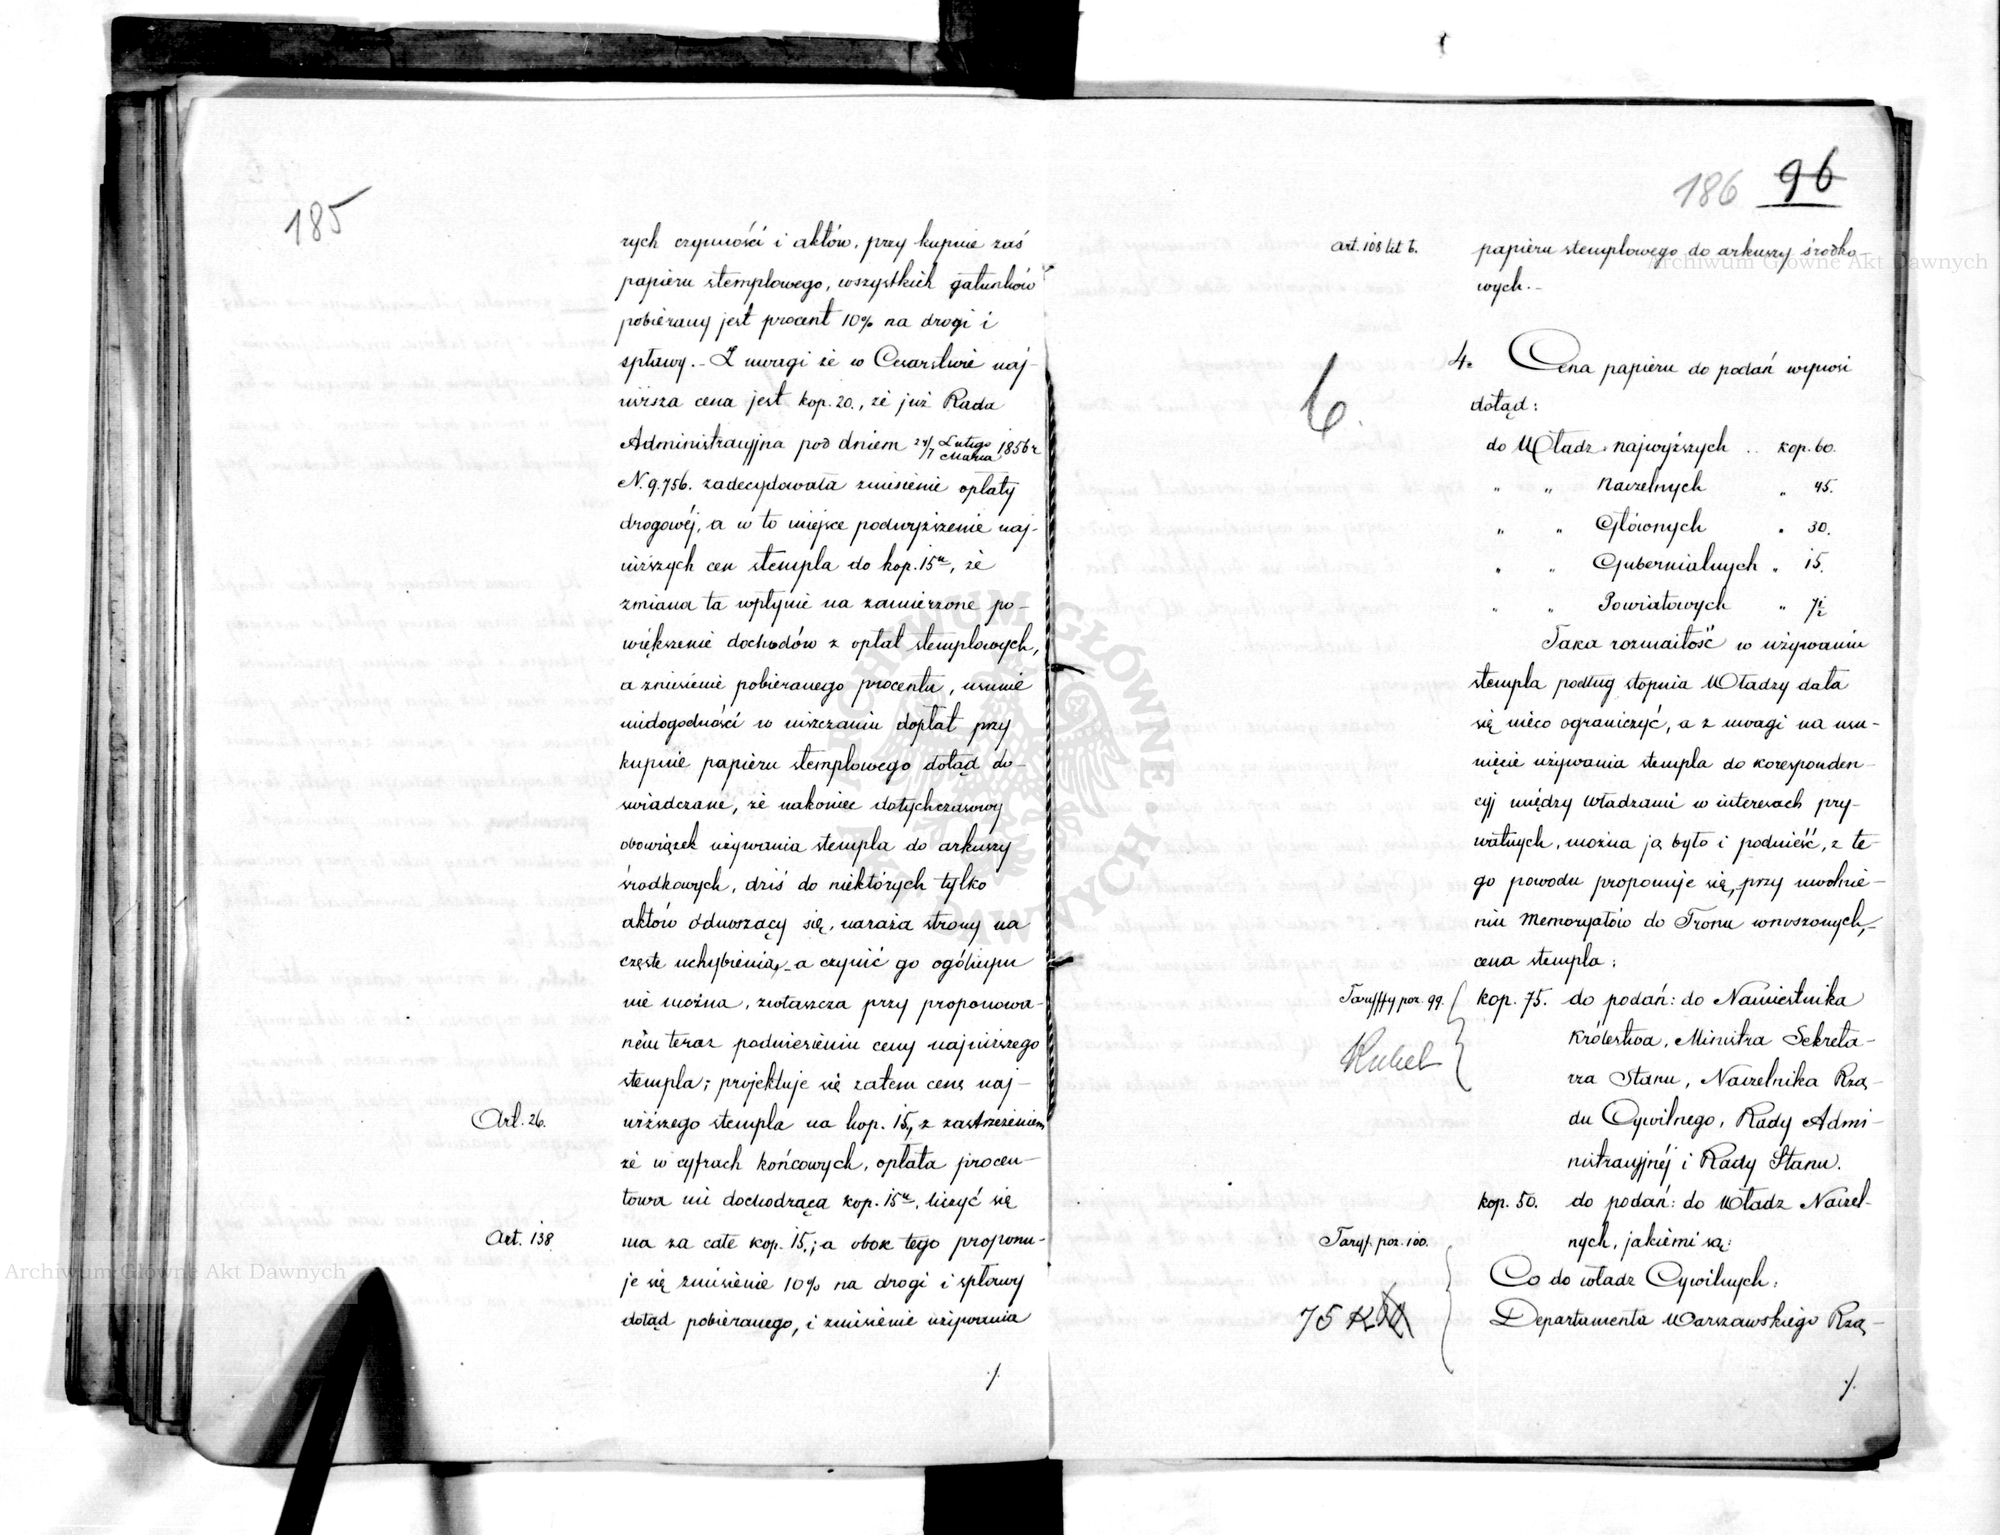 185
rych czynności i aktów, przy kupnie zaś
papieru stemplowego, wszystkich gatunków
pobierany jest procent 10% na drogi i
spławy.- Z uwagi że w Cesarstwie naj-
niższa cena jest kop. 20., że już Rada
Administracyjna pod dniem 24/7 Lutego/Marca 1856 r
N. 9.756. zadecydowała zniesienie opłaty
drogowéj, a w to miejsce podwyższenie naj-
niższych cen stempla do kop. 15u, że
zmiana ta wpłynie na zamierzone po-
większenie dochodów z opłat stemplowych,
a zniesienie pobieranego procentu, usunie
niedogodności w uiszczaniu dopłat przy
kupnie papieru stemplowego dotąd do-
świadczane, że nakoniec dotychczasowy
obowiązek używania stempla do arkuszy
środkowych, dziś do niektórych tylko
aktów odnoszący się, naraża strony na
częste uchybienia, a czynić go ogólnym
nie można, zwłaszcza przy proponowa-
ném teraz podniesieniu ceny najniższego
stempla; projektuje się zatem cenę naj-
Art. 26. niższego stempla na kop. 15, z zastrzeżeniem
że w cyfrach końcowych, opłata procen-
towa nie dochodząca kop. 15u, liczyć się
Art. 138 ma za całe kop. 15.; a obok tego proponu-
je się zniesienie 10% na drogi i spławy
dotąd pobieranego, i zniesienie używania
./.
186 96
Art. 108 lit b. papieru stemplowego do arkuszy środko-
wych.-
6.
4. Cena papieru do podań wynosi
dotąd:
do Władz najwyższych .. kop. 60.
" " Naczelnych " 45.
" " Głównych " 30.
" " Gubernialnych " 15.
" " Powiatowych " 7½
Taka rozmaitość w używaniu
stempla podług stopnia Władzy dała
się nieco ograniczyć, a z uwagi na usu-
nięcie używania stempla do koresponden-
cyj między Władzami w interesach pry-
watnych, można ją było i podnieść, z te-
go powodu proponuje się, przy uwolnie-
niu Memoryałów do Tronu wnoszonych,
cena stempla:
Taryffy poz. 99. kop. 75. do podań: do Namiestnika
Królestwa, Ministra Sekreta-
Rubel
rza Stanu, Naczelnika Rzą-
du Cywilnego, Rady Admi-
nistracyjnéj i Rady Stanu.
kop. 50. do podań: do Władz Naczel-
Taryf. poz. 100. nych, jakiemi są:
Co do władz Cywilnych:
75 Departamenta Warszawskiego Rzą-
./.
Archiwum Główne Akt Dawnych
Archiwum Główne Akt Dawnych
ARCHIWUM GŁÓWNE AKT DAWNYCH